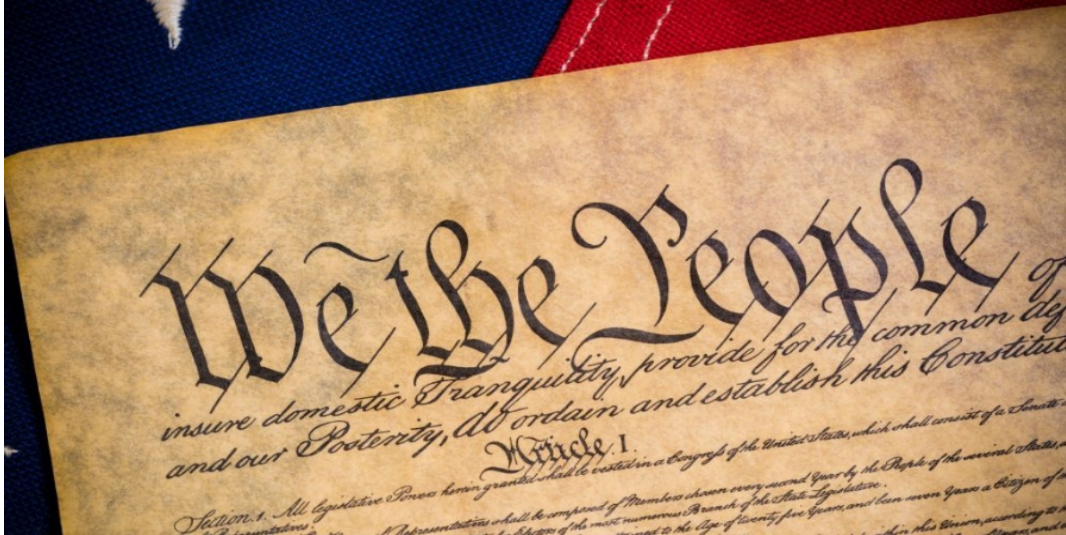 We the People of
insure domestic Tranquility, provide for the common def
and our Posterity, do ordain and establish this Constitut
Article. I.
Section. 1. All legislative Powers herein granted shall be vested in a Congress of the United States, which shall consist of a Senate
Representatives.
Representatives shall be composed of Members chosen every second Year by the People of the several States,
the Electors of the most numerous Branch of the State Legislature.
attained to the Age of twenty five Years, and been seven Years a Citizen of
within this Union, according to